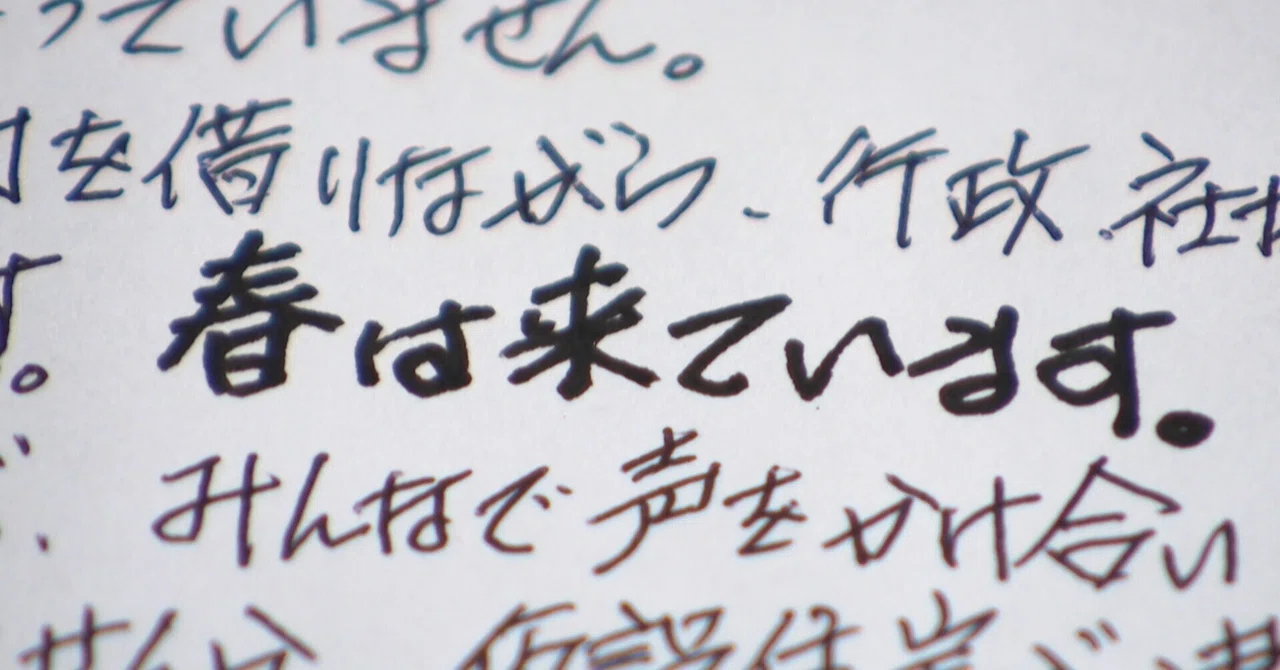 っていません。
を借りながら、行政、社
す。春は来ています。
みんなで声をかけ合い
せんが、仮設住宅で